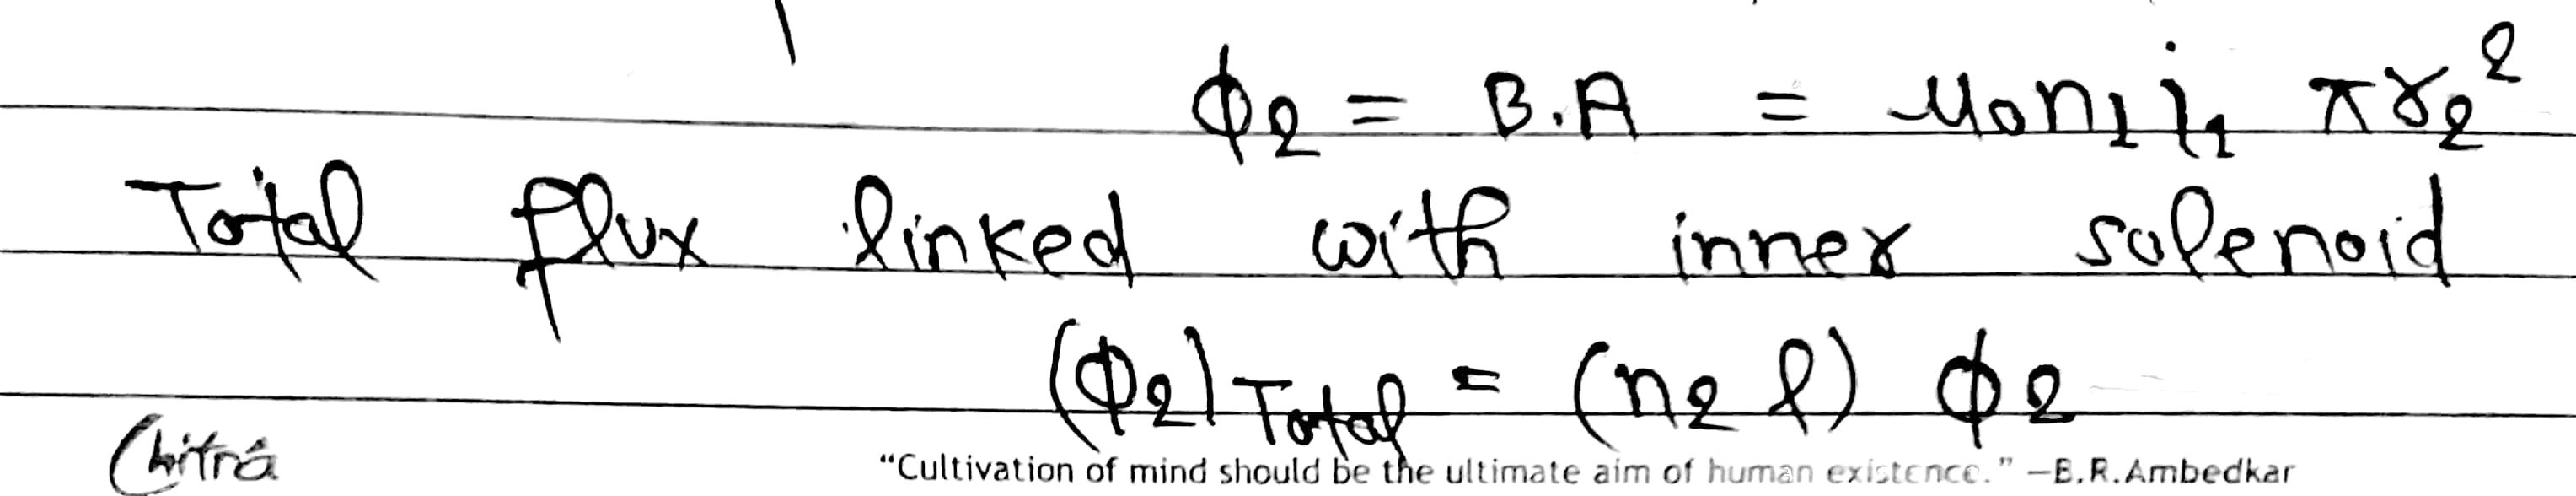 ϕ₂ = B.A = μ₀n₁i₁ πr₂²
Total flux linked with inner solenoid
(ϕ₂)Total = (n₂ l) ϕ₂
Chitra
“Cultivation of mind should be the ultimate aim of human existence.” —B.R.Ambedkar